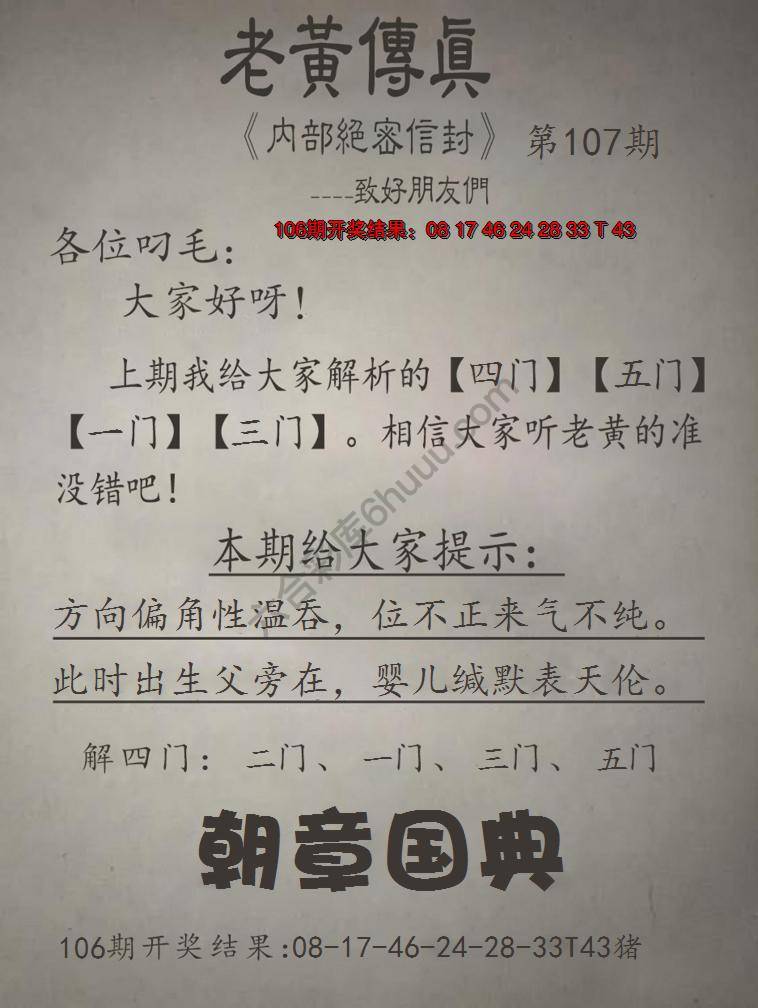 老黃傳眞
《内部絕密信封》 第107期
----致好朋友們
106期开奖结果：08 17 46 24 28 33 T 43
各位叼毛：
大家好呀！
上期我给大家解析的【四门】【五门】
【一门】【三门】。相信大家听老黄的准
没错吧！
本期给大家提示：
方向偏角性温吞，位不正来气不纯。
此时出生父旁在，婴儿缄默表天伦。
解四门： 二门、 一门、 三门、 五门
朝章国典
106期开奖结果:08-17-46-24-28-33T43猪
六合彩库6huuu.com